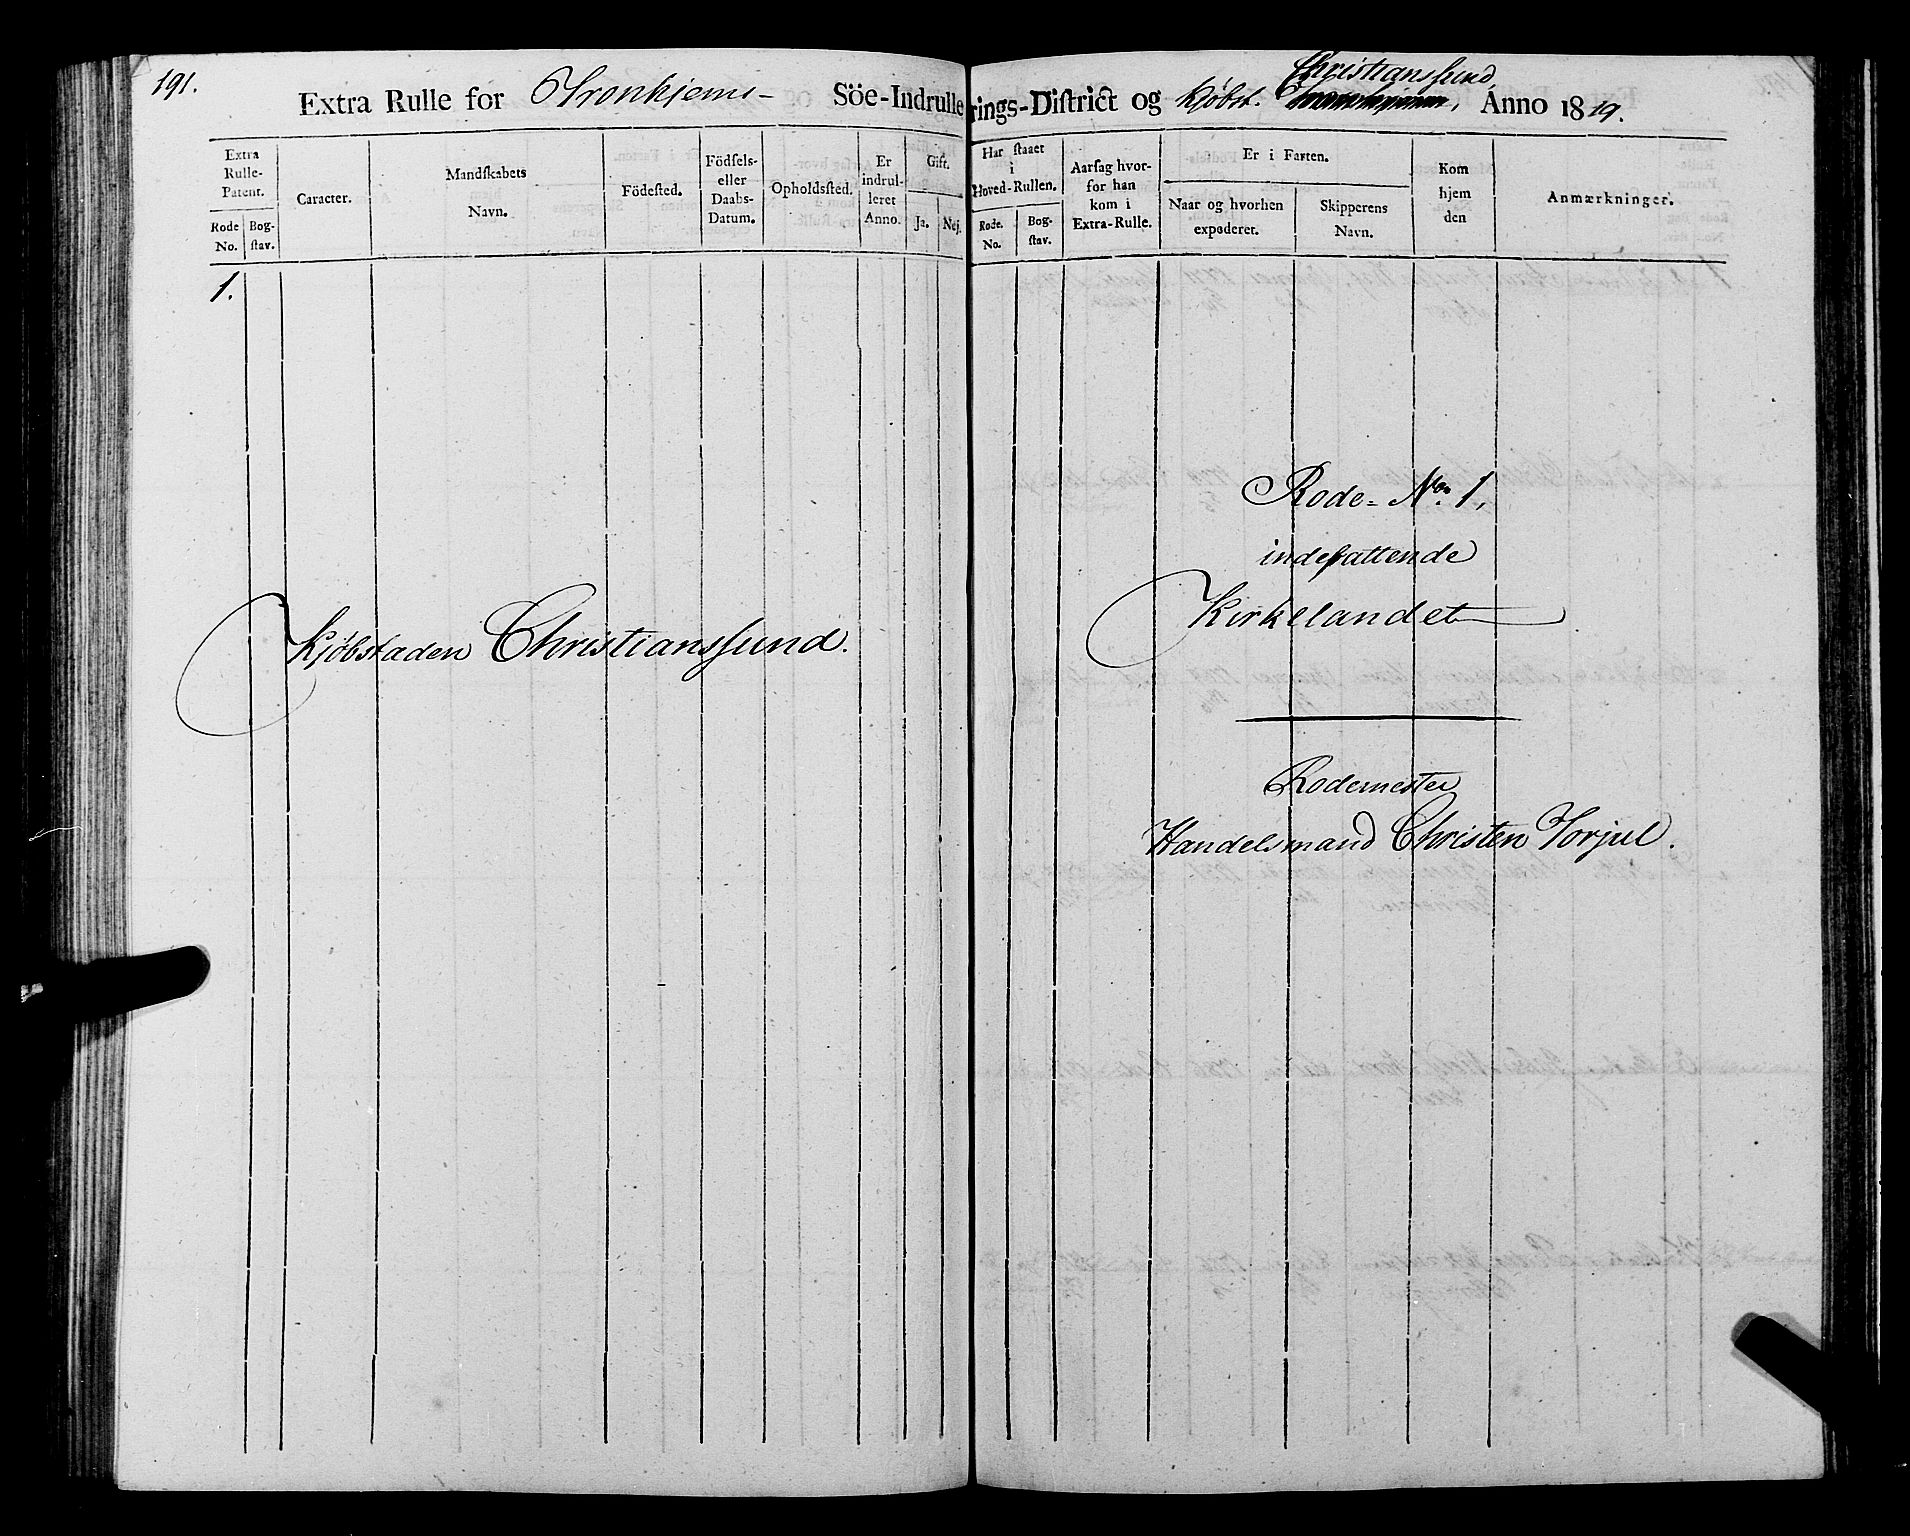 191.
Extra Rulle for Tronhjems- Söe-Indrullerings-District og Kjöbst. Christianssund, Anno 1819.
Extra Rulle-Patent.
Rode No.
Bog-stav.
Caracter.
Mandskabets Navn.
Födested.
Födsels- eller Daabs-Datum.
Opholdssted.
Er indrulleret Anno.
Gift.
Ja.
Nej.
Har staaet i Hoved-Rullen.
Rode. No.
Bog-stav.
Aarsag hvorfor han kom i Extra-Rulle.
Er i Farten.
Naar og hvorhen expederet.
Skipperens Navn.
Kom hjem den
Anmærkninger.
1.
Kjøbstaden Christianssund.
Rode- No. 1,
indefattende
Kirkelandet
Rodemester
Handelsmand Christen Torjul.